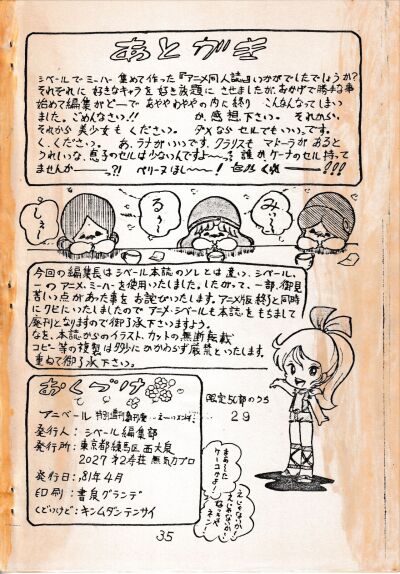 あとがき
シベールでミーハー集めて作った『アニメ同人誌』いかがでしたでしょうか?
それぞれに好きなキャラを好き放題にさせましたが、おかげで勝手な事
始めて編集がどーであやややわやの内に終り こんなんなってしまい
ました。ごめんなさい!! が、感想、下さい。それから、
それから美少女もください。ダメならセルでもいいっです。
く、ください。あ、ラナがいいです、クラリスもマドーラがあると
うれしいな、息子のセルは少ないんですよ〜〜っ? 誰かケーナのセル持って
ませんか——っ?! ペリーヌほし〜〜!
しぇー
るぅー
みぃー
今回の編集長はシベール本誌のソレとは違い、シベール
一のアニメ・ミーハーを使用いたしました。したがって、一部、御見
苦しい点があった事をお詫びいたします。アニメ版終了と同時
にクビにいたしましたのでアニメシベールも本誌をもちまして
廃刊となりますので御了承下さいますよう。
なを、本誌からのイラスト、カットの無断転載
コピー等の複製は多少にかかわらず厳禁といたします。
重ねて御了承下さい。
おくづけ
発行人:シベール編集部
発行所:東京都練馬区西大泉
2027 才2寿荘 無気力プロ
発行日:'81年4月
印刷:書泉グランデ
くどいけど:キンムダンテンサイ
限定50部のうち
29
まぁーした
ケーコかよ!
えじゃないか!
えじゃないか!
35